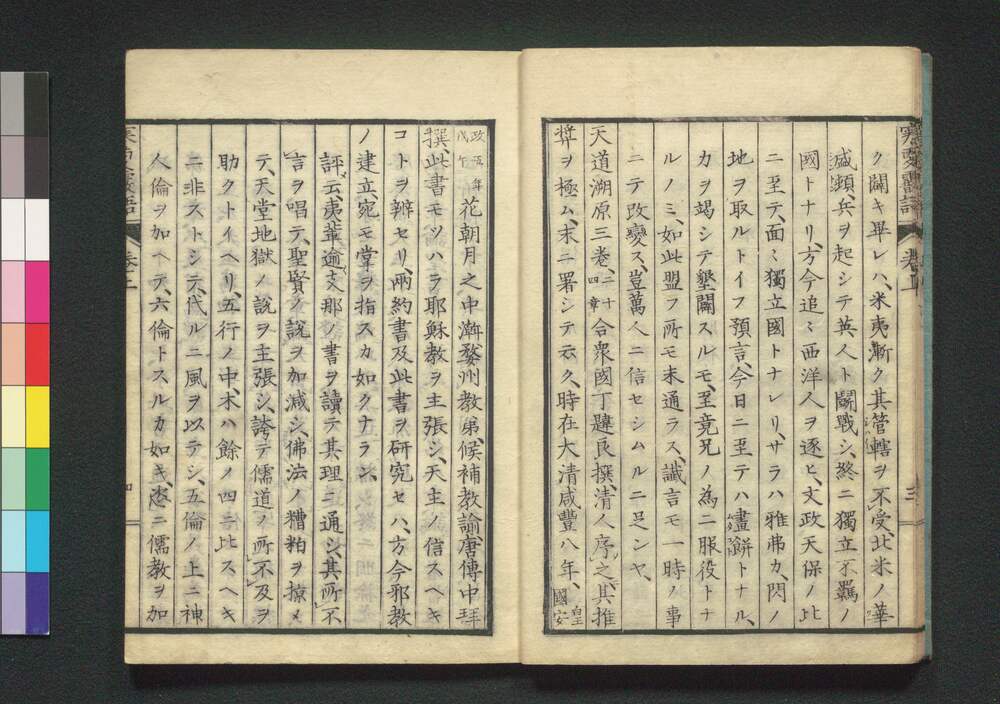 ク闢キ畢レハ、米夷漸ク其管轄ヲ不受、北米ノ華
盛頓、兵ヲ起シテ英人ト鬪戰シ、終ニ獨立不羈ノ
國トナリ、方今追〻西洋人ヲ逐ヒ、文政天保ノ比
ニ至テ、面〻獨立國トナレリ、サラハ雅弗カ、閃ノ
地ヲ取ルトイフ預言、今日ニ至テハ畫餅トナル、
カヲ竭シテ墾闢スルモ、至竟兄ノ為ニ服役トナ
ルノミ、如此盟フ所モ未通ラス、讖言モ一時ノ事
ニテ改變ス、豈萬人ニ信セシムルニ足ンヤ、
天道溯原三卷、二十四章合衆國丁韙良撰、清人序之、其推
奨ヲ極ム、末ニ署シテ云ク、時在大清咸豐八年、皇國安
政五年戊午花朝月之中澣、婺州教弟、候補教諭、唐傳中拜
撰、此書モツハラ耶穌教ヲ主張シ、天主ノ信スヘキ
コトヲ辨セリ、兩約書及此書ヲ研究セハ、方今邪教
ノ建立、宛モ掌ヲ指スカ如クナラン、
評云、夷輩逾〻支那ノ書ヲ讀テ其理ニ通シ、其所不
言ヲ唱テ、聖賢ノ說ヲ加減シ、佛法ノ糟粕ヲ掠メ
テ、天堂地獄ノ說ヲ主張シ、誇テ儒道ノ所不及ヲ
助クトイヘリ、五行ノ中、木ハ餘ノ四
ニ非ストシテ、代ルニ風ヲ以テシ、五倫ノ上ニ神
人倫ヲ加ヘテ、六倫トスルカ如キ、恣ニ儒教ヲ加